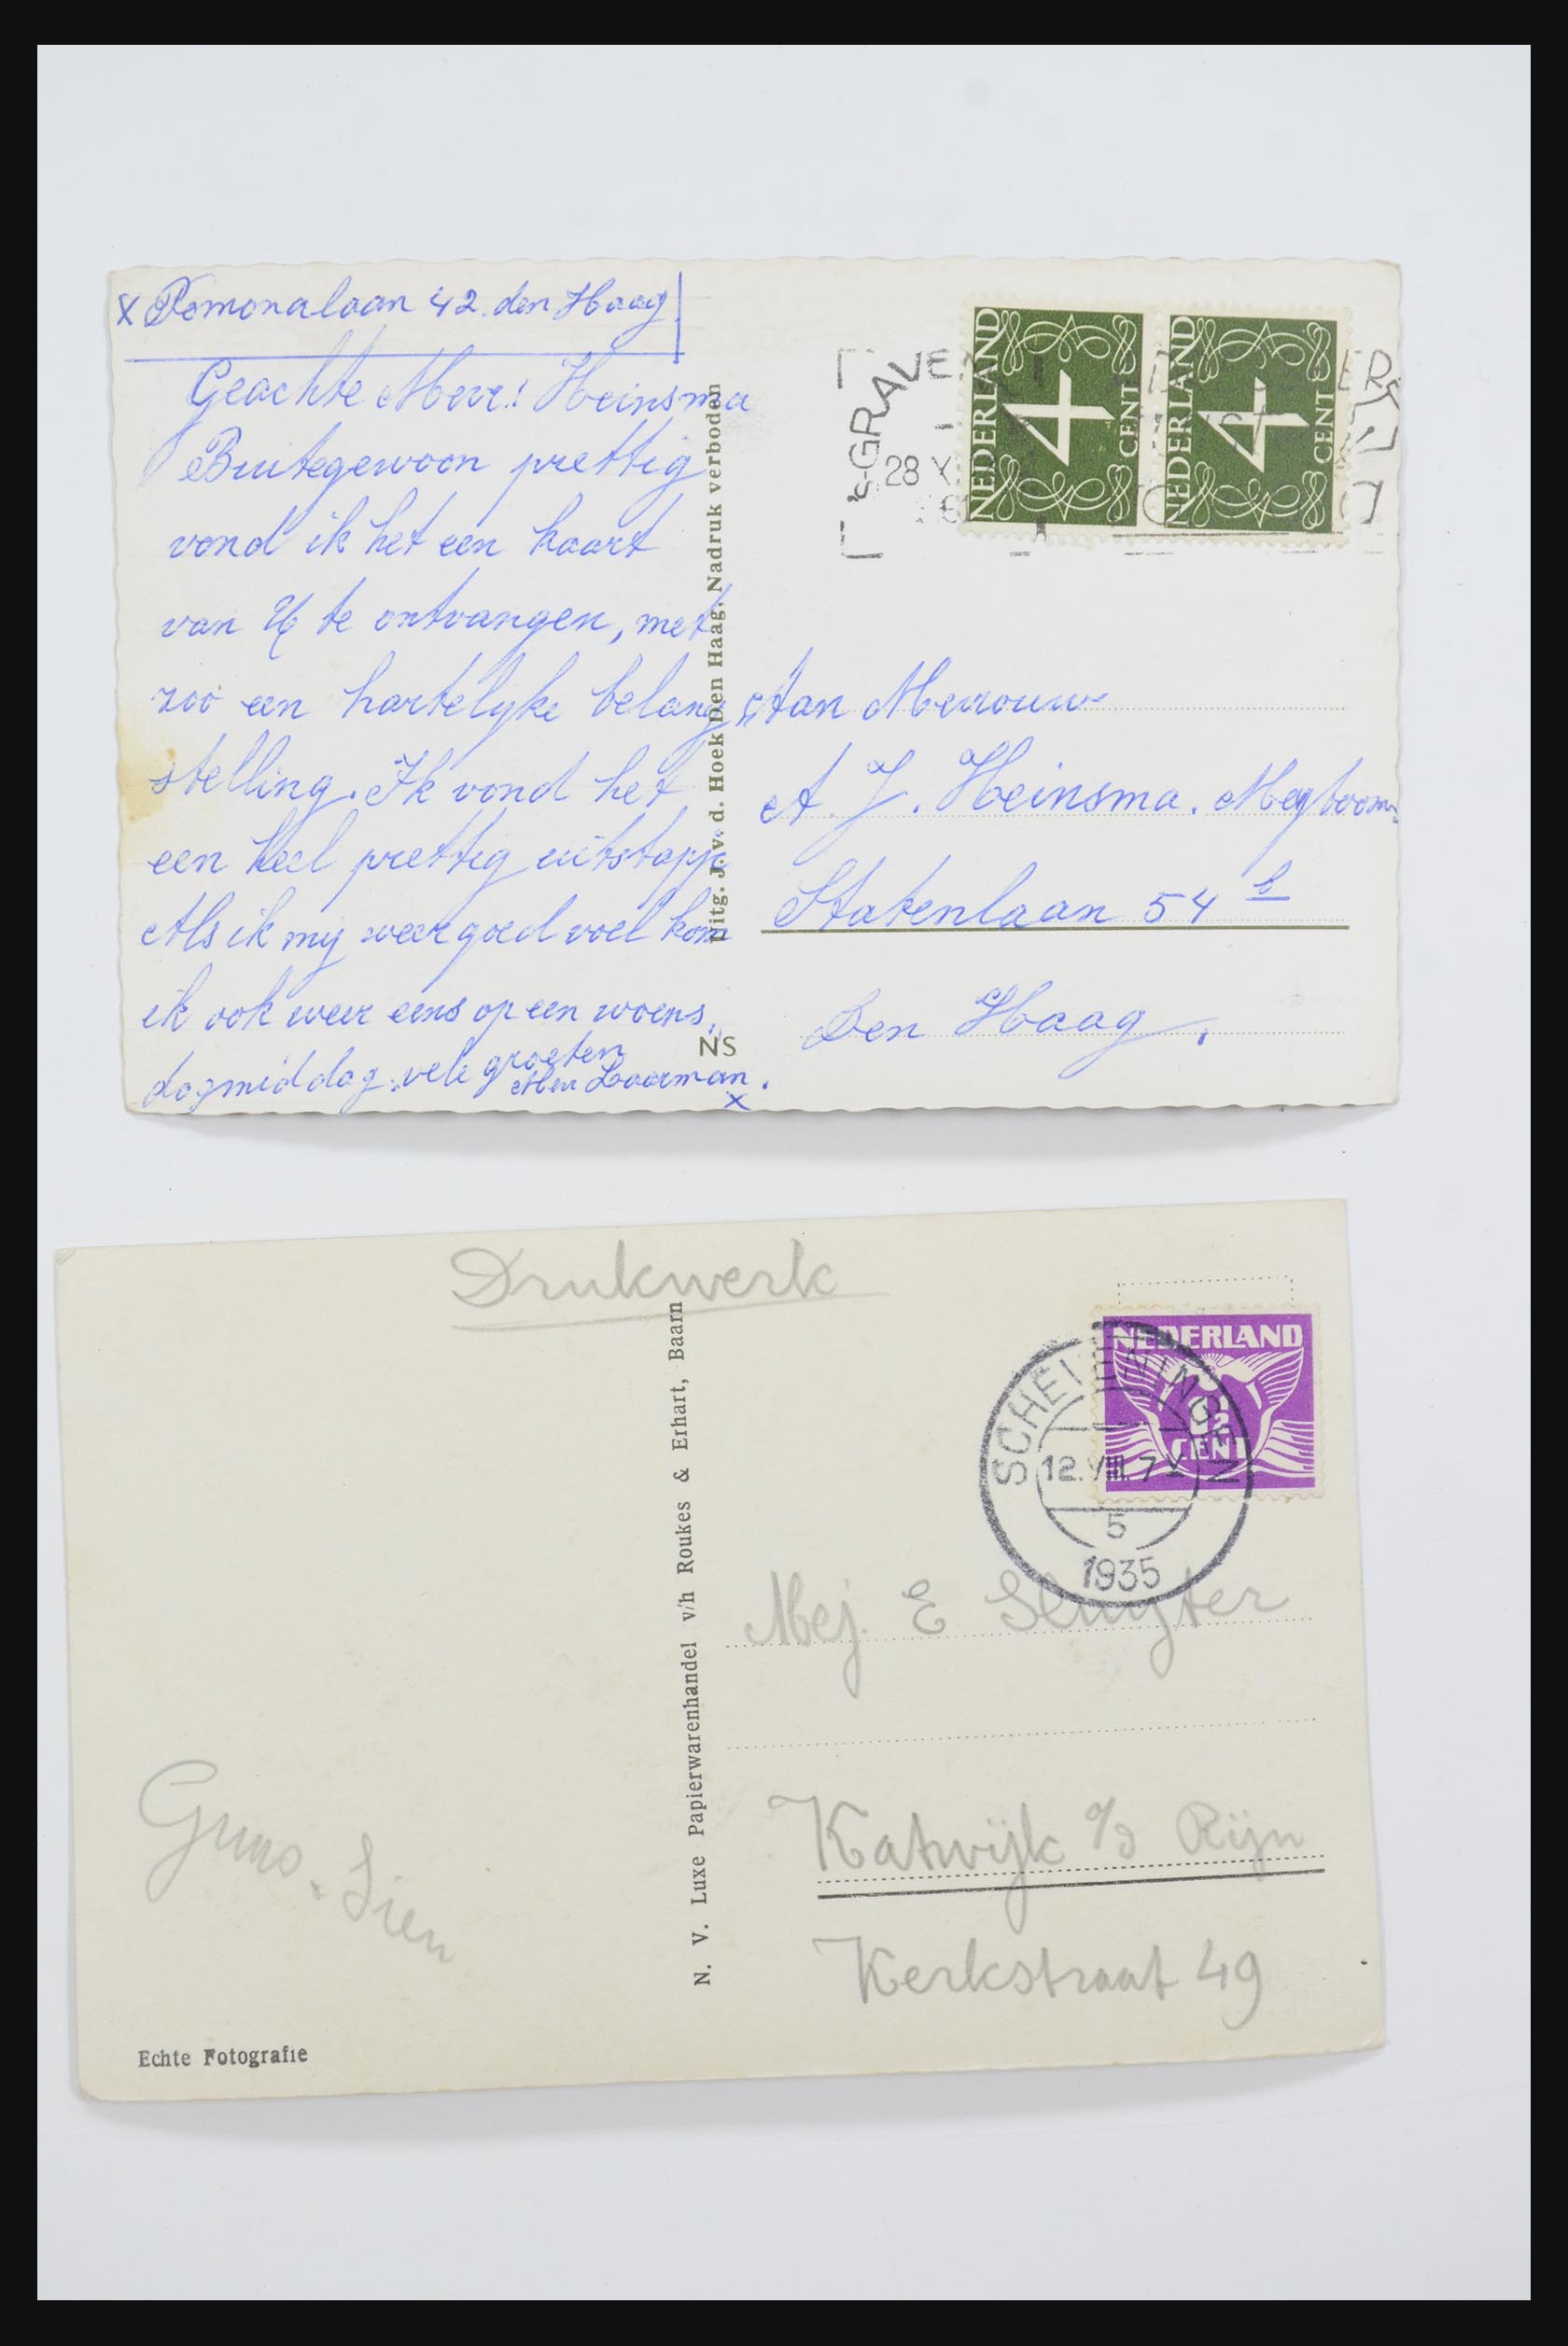 x Pomonalaan 42. den Haag
Geachte Mevr.! Heinsma
Buitegewoon prettig
vond ik het een kaart
van U te ontvangen, met
zoo een hartelyke belang
stelling. Ik vond het
een heel prettig uitstapje
Als ik my weer goed voel kom
ik ook weer eens op een woens,
dagmiddag. vele groeten
Mevr Laarman.
x
Uitg. J. v. d. Hoek Den Haag, Nadruk verboden
NS
's-GRAVE
28 X
NEDERLAND
4
CENT
NEDERLAND
4
CENT
Aan Mevrouw
A. J. Heinsma. Meyboom
Statenlaan 54 b
Den Haag,
Drukwerk
N. V. Luxe Papierwarenhandel v/h Roukes & Erhart, Baarn
NEDERLAND
CENT
SCHEVENINGEN
12.VIII.7
5
1935
Mej. E Sluyter
Katwijk a/d Rijn
Kerkstraat 49
Guus. Sien
Echte Fotografie